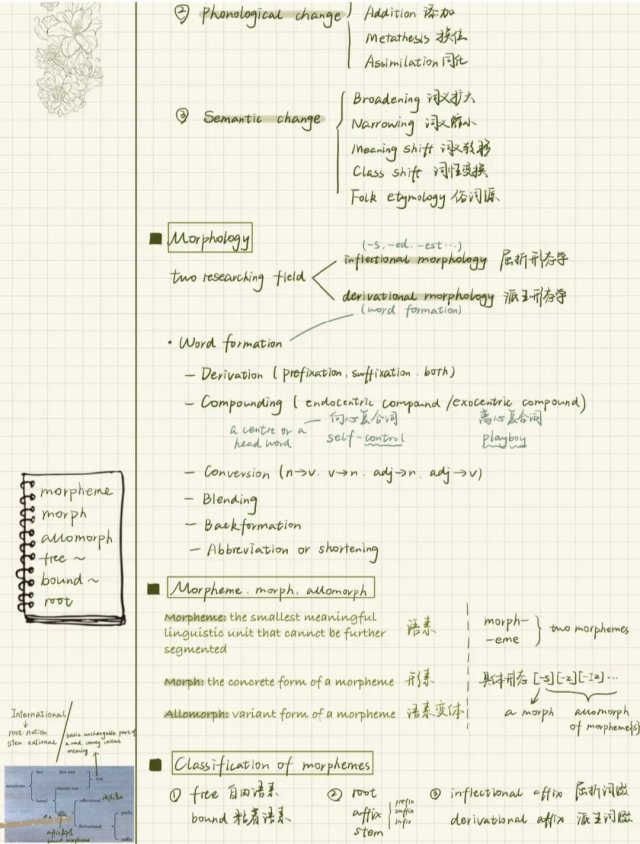 ② Phonological change
Addition 添加
Metathesis 换位
Assimilation 同化
③ Semantic change
Broadening 词义扩大
Narrowing 词义缩小
Meaning shift 词义转移
Class shift 词性变换
Folk etymology 俗词源
Morphology
two researching field
(-s, -ed, -est ...)
inflectional morphology 屈折形态学
derivational morphology 派生形态学
(word formation)
• Word formation
— Derivation (prefixation, suffixation, both)
— Compounding (endocentric compound / exocentric compound)
a centre or a head word
向心复合词
self-control
离心复合词
playboy
— Conversion (n→v. v→n. adj→n. adj→v)
— Blending
— Backformation
— Abbreviation or shortening
morpheme
morph
allomorph
free ~
bound ~
root
Morpheme. morph, allomorph
Morpheme: the smallest meaningful 语素
linguistic unit that cannot be further
segmented
morph-
-eme
two morphemes
Morph: the concrete form of a morpheme 形素
具体形态 [-s][-z][-iz]...
Allomorph: variant form of a morpheme 语素变体
a morph
allomorph
of morpheme{s}
International
root: nation
stem: national
basic unchangeable part of
a word, convey central
meaning
Classification of morphemes
① free 自由语素
bound 粘着语素
② root
affix
stem
prefix
suffix
infix
③ inflectional affix 屈折词缀
derivational affix 派生词缀
morpheme
free
free root
root
bound
inflectional
derivational
prefix
suffix